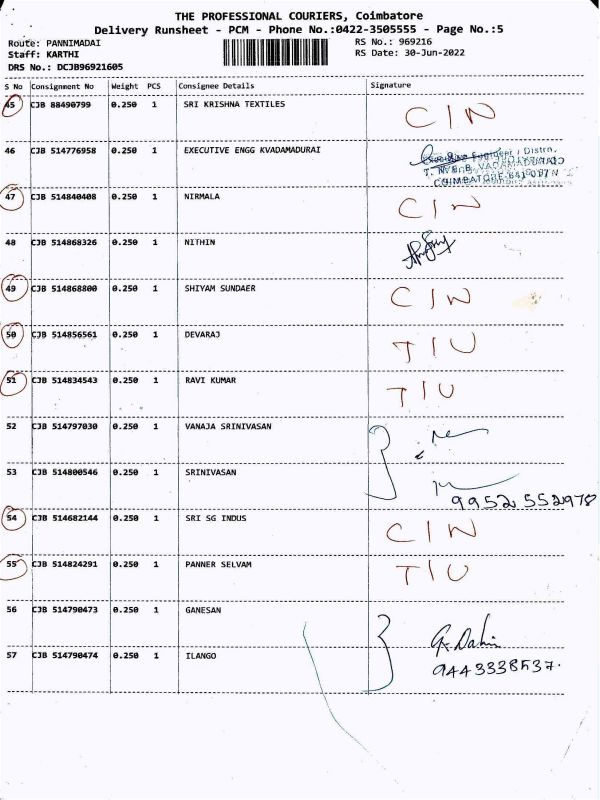 THE PROFESSIONAL COURIERS, Coimbatore
Delivery Runsheet - PCM - Phone No.:0422-3505555 - Page No.:5
Route: PANNIMADAI
RS No.: 969216
Staff: KARTHI
RS Date: 30-Jun-2022
DRS No.: DCJB96921605
S No Consignment No Weight PCS Consignee Details Signature
45 CJB 88490799 0.250 1 SRI KRISHNA TEXTILES C/N
46 CJB 514776958 0.250 1 EXECUTIVE ENGG KVADAMADURAI
COIMBATORE-641 017
47 CJB 514840408 0.250 1 NIRMALA C/N
48 CJB 514868326 0.250 1 NITHIN
49 CJB 514868800 0.250 1 SHIYAM SUNDAER C/N
50 CJB 514856561 0.250 1 DEVARAJ T/U
51 CJB 514834543 0.250 1 RAVI KUMAR T/U
52 CJB 514797030 0.250 1 VANAJA SRINIVASAN
53 CJB 514800546 0.250 1 SRINIVASAN
9952552978
54 CJB 514682144 0.250 1 SRI SG INDUS C/N
55 CJB 514824291 0.250 1 PANNER SELVAM T/U
56 CJB 514790473 0.250 1 GANESAN
57 CJB 514790474 0.250 1 ILANGO 9443338537.